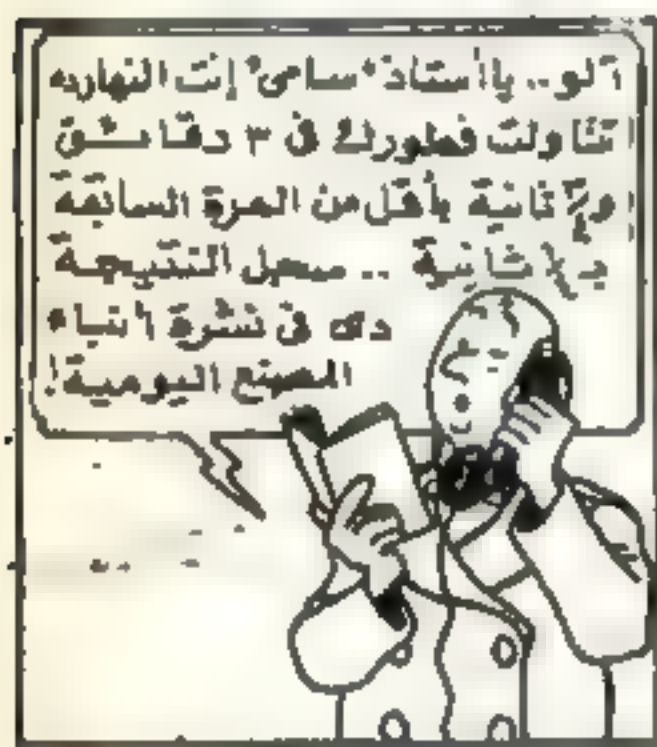 آلو.. ياأستاذ "سامى" إنت النهارده
تنا ولت فطورك فى ٣ دقائق
ثانية بأقل من المرة السابقة
ثانية .. سجل النتيجة
دى فى نشرة أنباء
المصنع اليومية!